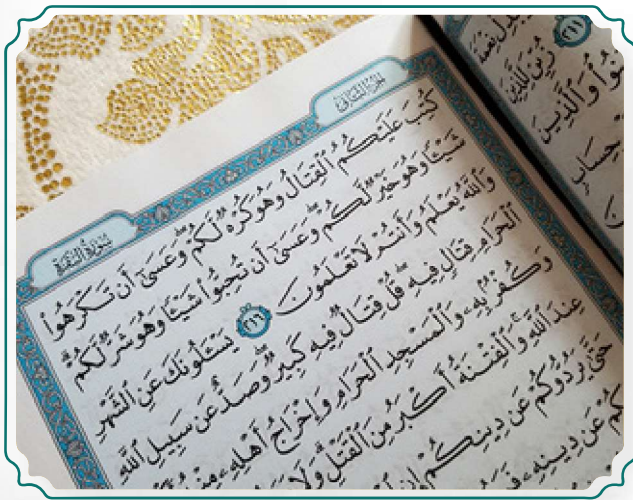 الجزء الثاني
سورة البقرة
كُتِبَ عَلَيْكُمُ ٱلْقِتَالُ وَهُوَ كُرْهٌ لَّكُمْ ۖ وَعَسَىٰٓ أَن تَكْرَهُوا۟
شَيْـًٔا وَهُوَ خَيْرٌ لَّكُمْ ۖ وَعَسَىٰٓ أَن تُحِبُّوا۟ شَيْـًٔا وَهُوَ شَرٌّ لَّكُمْ ۗ
وَٱللَّهُ يَعْلَمُ وَأَنتُمْ لَا تَعْلَمُونَ ٢١٦ يَسْـَٔلُونَكَ عَنِ ٱلشَّهْرِ
ٱلْحَرَامِ قِتَالٍ فِيهِ ۖ قُلْ قِتَالٌ فِيهِ كَبِيرٌ ۖ وَصَدٌّ عَن سَبِيلِ ٱللَّهِ
وَكُفْرٌۢ بِهِۦ وَٱلْمَسْجِدِ ٱلْحَرَامِ وَإِخْرَاجُ أَهْلِهِۦ مِنْهُ
عِندَ ٱللَّهِ ۚ وَٱلْفِتْنَةُ أَكْبَرُ مِنَ ٱلْقَتْلِ ۗ وَلَا
حَتَّىٰ يَرُدُّوكُمْ عَن دِينِكُمْ إِنِ
عَن دِينِهِۦ
٢١١
زُيِّنَ لِلَّذِينَ
وَٱلَّذِينَ
حِسَابٍ